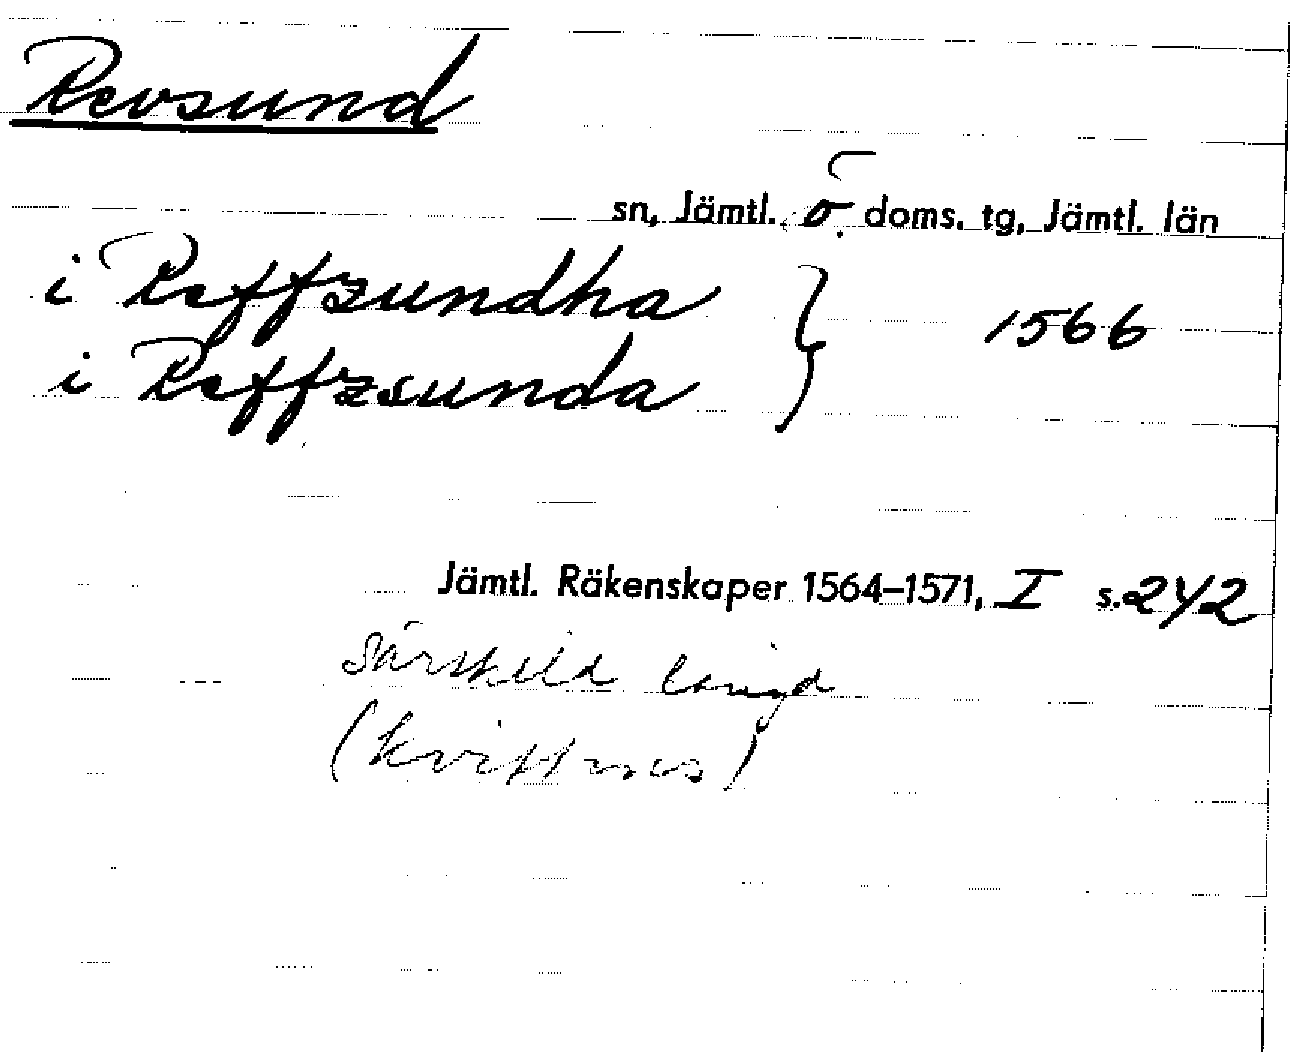 Revsund
sn, Jämtl. ö. doms. tg, Jämtl. län
i Reffzundha } 1566
i Reffzsunda
Jämtl. Räkenskaper 1564–1571, I s. 242
Särskild längd